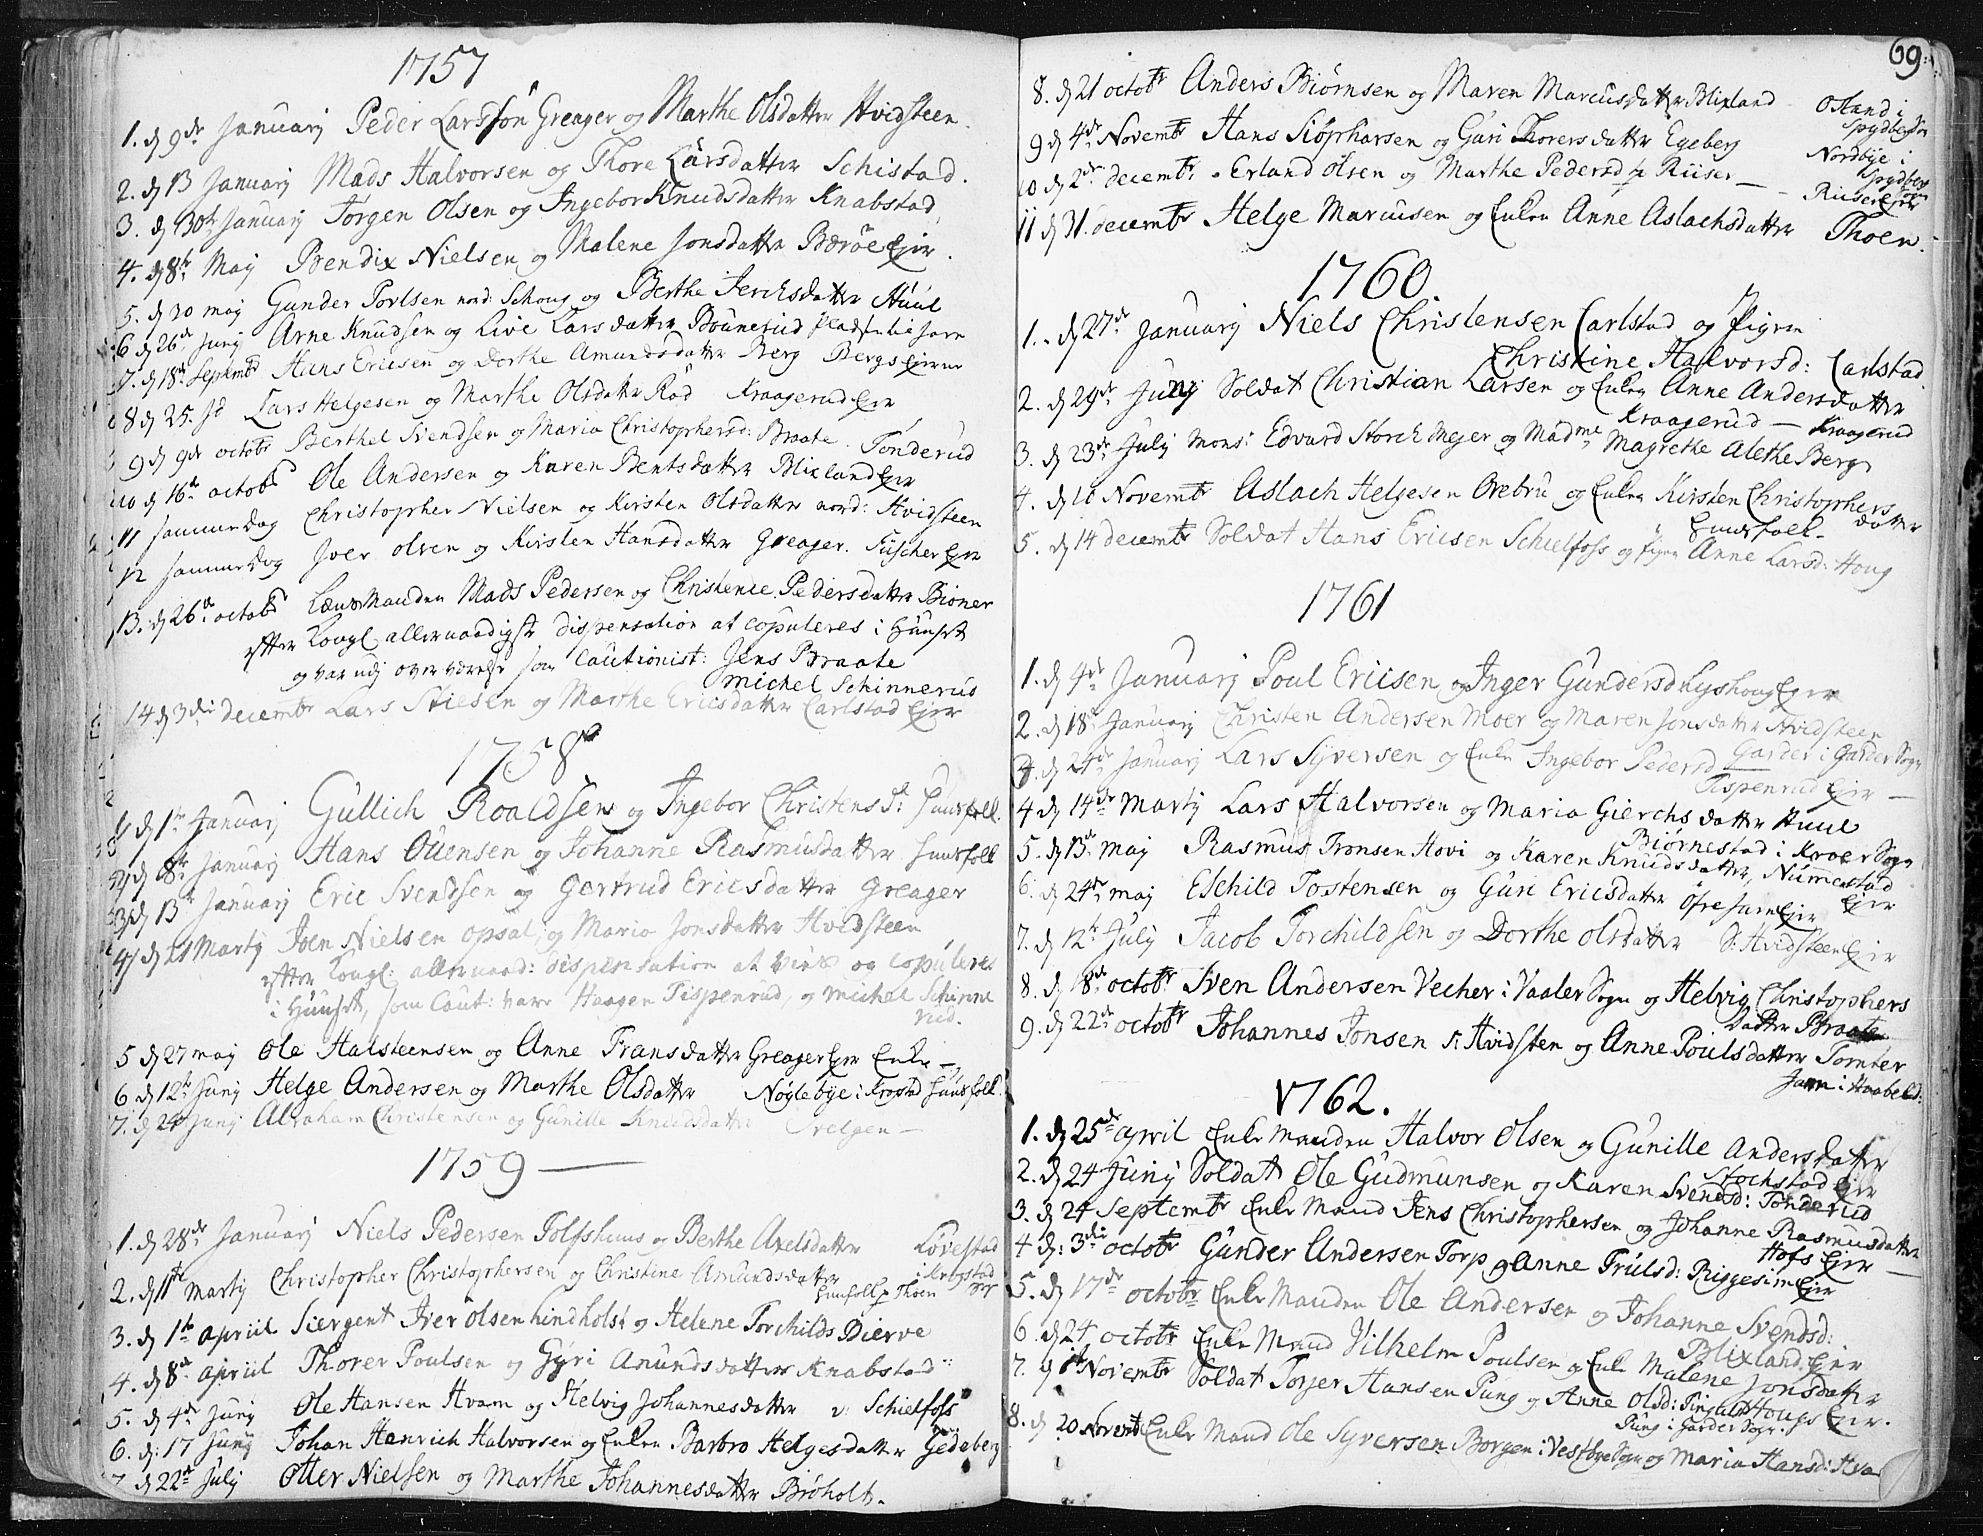 1757
1. d 9de Januarij Peder Larssøn Greager og Marthe Olsdatter Hvidsteen
2. d 13 Januarij Mads Halvorsen og Thore Larsdatter Schistad.
3. d 30te Januarij Jørgen Olsen og Ingebor Knudsdatter Knabstad
4. d 8de Maij Bendix Nielsen og Malene Jonsdatter Bærøe Ejer
5. d 20 maij Gunder Povlsen nord: Schoug og Berthe Jerchsdatter Huul
6 d 26de Junij Arne Knudsen og Live Larsdatter Brunerud
7. d 18de Septembr Hans Ericsen og Dorthe Amundsdatter Berg Bergs Ejerne
8 d 25. Jd Lars Helgesen og Marthe Olsdatter Rød Kraagerud Ejer
9 d 9de octobr Berthel Svendsen og Maria Christophersd: Braate. Tonderud
10 d 16de octobr Ole Andersen og Karen Bentsdatter Blixland Ejer
11 sammedag Christopher Nielsen og Kirsten Olsdatter nord: Hvidsteen
12 sammedag Joer Olsen og Kirsten Hansdatter Greager. Fuscher Ejer
13. d 26de octobr Lænsmanden Mads Pedersen og Christence Pedersdatter Biøner
efter Kongl allernaadigste dispensation at copuleres i Huuset
og var udj overværelse som Cautionist: Jens Braate
michel Schinnerud
14 d 3die decembr Lars Stiesen og Marthe Ericsdatter Carlstad Ejer
1758
1 d 1te Januarij Gullich Roaldsen og Ingebor Christensd: huusfoll.
2 d 8de Januarij Hans Ouensen og Johanne Rasmusdatter huusfoll
3 d 13de Januarij Eric Svendsen og Gertrud Ericsdatter Greager
4 d 21 Martij Joen Nielsen opsal, og Maria Jonsdatter Hvidsteen
efter Kongl: allernaad: dispensation at vies og copuleres
i Huuset, som Caut: vare Haagen Tispenrud, og michel Schinne
rud.
5 d 27 maij Ole Halsteensen og Anne Fransdatter Greager Ejer Enke
6 d 12te Junij Helge Andersen og Marthe Olsdatter Nøglebye i Krogstad huusfoll
7. d 24 Junij Abraham Christensen og Gunille Knudsdatter
1759
1. d 28de Januarij Niels Pedersen Tolfshuus og Berthe Axelsdatter Løvestad
i Krogstad
2. d 11te Martij Christopher Christophersen og Christine Amundsdatter
huusfoll p Thoen Ejer
3. d 1te Apriil Siergent Iver Olsen Lindholst og Helene Torchilds Dierve
4. d 8de Apriil Thorer Poulsen og Gyri Anundsdatter Knabstad
5. d 4de Junij Ole Hansen Hvam og Helvig Johannesdatter v: Schielfoss
6. d: 17 Junij Johan Henrich Halvorsen og Enken Barbro Helgesdatter Gedeberg
7 d 22de Julij Otter Nielsen og Marthe Johannesdatter Brøholt.
69
8. d 21 octobr Anders Biørnsen og Maren Marcusdatter Blixland Østland i
Spydberg
9 d 4de Novembr Hans Siøpharsen og Guri Thorersdatter Egeberg Nordbye i
Spydberg
10 d 2de decembr Erland Olsen og Marthe Pedersd fr Riiser Riiser Ejer
11 d 31. decembr Helge Marcusen og Enken Anne Aslachsdatter Thoen.
1760.
1. d 27de Januarij Niels Christensen Carlstad og Pigen
Christine Halvorsd: Carlstad.
2. d 29de Junij Soldat Christian Larsen og Enken Anne Andersdatter
Kraagerud — Kraagerud
3. d 23de Julij Mons: Edvard Storch Mejer og Madme Magrethe Alethe Berg
4. d 16 Novembr Aslach Helgesen Orebru og Enken Kirsten Christophers
datter
huusfoll.
5. d 14 decembr Soldat Hans Ericsen Schielfoss og pigen Anne Larsd: Houg
1761
1. d 4de Januarij Poul Ericsen og Inger Gundersd Lyshoug Ejer
2. d 18de Januarij Christen Andersen Moer og Maren Jonsdatter Hvidsteen
3. d 24de Januarij Lars Syversen og Enke Ingebor Pedersd Garder i Garder Sogn
Tispenrud Ejer
4 d 14de Martij Lars Halvorsen og Maria Gierchsdatter Huul
Biørnestad i Kroer Sogn
5. d 13de maij Rasmus Tronsen Hovi og Karen Knudsdatter, Nummestad
Ejer
6. d 24de maij Eschild Tostensen og Guri Ericsdatter Øfre Jarn Ejer
7. d 12te Julij Jacob Torchildsen og Dorthe Olsdatter S: Hvidsteen Ejer
8. d 18de octobr Sven Andersen Vecher i Vaaler Sogn og Helvig Christophers
datter Braate
9. d 22de octobr Johannes Jonsen S: Hvidsten og Anne Poulsdatter Tomter
Jarn i Haabøl.
1762.
1. d 25de April Enke Manden Halvor Olsen og Gunille Andersdatter
Stochstad Ejer
2. d 24 Junij Soldat Ole Gudmunsen og Karen Svendsd: Tonderud
3. d 24 Septembr Enke Mand Jens Christophersen og Johanne Rasmusdatter
Hofs Ejer
4 d: 3die octobr Gunder Andersen Torp og Anne Truelsd: Risgesim Ejer
5. d 17de octobr Enke Manden Ole Andersen og Johanne Svendsd:
Blixland Ejer
6. d 24 octobr Enke Mand Vilhelm Poulsen og Enke Malene Jonsdatter
Hougs Ejer.
7. d 1te Novembr Soldat Torjer Hansen Pung og Anne Olsd:
Pung i Garder Sogn
8. d 20 Novembr Enke Mand Ole Syversen Borgen i Vestbye Sogn og Maria Hansd: Hva